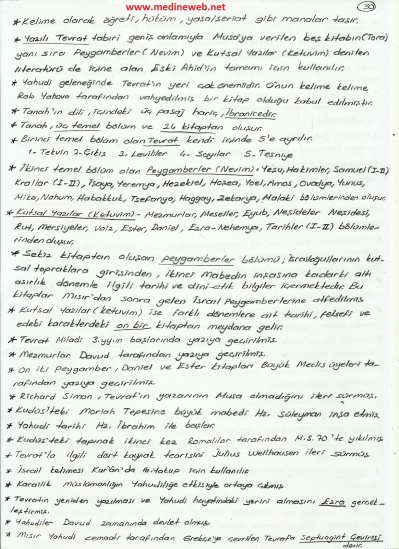 www.medineweb.net
30
* Kelime olarak öğreti, hüküm, yasa/şeriat gibi manalar taşır.
* Yazılı Tevrat tabiri geniş anlamıyla Musa'ya verilen beş kitabın (Tora)
yanı sıra Peygamberler (Nevim) ve Kutsal Yazılar (Ketuvim) denilen
literatürü de içine alan Eski Ahid'in tamamı için kullanılır.
* Yahudi geleneğinde Tevrat'ın yeri çok önemlidir. O'nun kelime kelime
Rab Yahova tarafından vahyedilmiş bir kitap olduğu kabul edilmiştir.
* Tanah'ın dili, içindeki üç pasaj hariç, İbranicedir.
* Tanah, üç temel bölüm ve 24 kitaptan oluşur.
* Birinci temel bölüm olan Tevrat kendi içinde 5'e ayrılır.
1- Tekvin 2- Çıkış 3- Levililer 4- Sayılar 5- Tesniye
* İkinci temel bölüm olan Peygamberler (Nevim): Yeşu, Hakimler, Samuel (I-II)
Krallar (I-II), İşaya, Yeremya, Hezekiel, Hoşea, Yoel, Amos, Ovadya, Yunus,
Mika, Nahum, Habakkuk, Tsefanya, Haggay, Zekarya, Malaki bölümlerinden oluşur.
* Kutsal Yazılar (Ketuvim) - Mezmurlar, Meseller, Eyub, Neşideler Neşidesi,
Rut, Mersiyeler, Vaiz, Ester, Daniel, Ezra-Nehemya, Tarihler (I-II) bölümle-
rinden oluşur.
* Sekiz kitaptan oluşan peygamberler bölümü; İsrailoğullarının kut-
sal topraklara girişinden, ikinci Mabedin inşasına kadarki altı
asırlık dönemle ilgili tarihi ve dini-etik bilgiler içermektedir. Bu
kitaplar Mısır'dan sonra gelen İsrail Peygamberlerine atfedilmiş
* Kutsal Yazılar (ketuvim) ise farklı dönemlere ait tarihi, felsefi ve
edebi karakterdeki on bir kitaptan meydana gelir.
* Tevrat Miladi 3.yyın başlarında yazıya geçirilmiş.
* Mezmurlar Davud tarafından yazıya geçirilmiş.
* On iki Peygamber, Daniel ve Ester kitapları Büyük Meclis üyeleri ta-
rafından yazıya geçirilmiş.
* Richard Simon, Tevrat'ın yazarının Musa olmadığını ileri sürmüş.
* Kudüs'teki Moriah Tepesine büyük mabedi Hz. Süleyman inşa etmiş.
* Yahudi tarihi Hz. İbrahim ile başlar.
* Kudüs'teki tapınak ikinci kez Romalılar tarafından M.S. 70'te yıkılmış
* Tevrat'la ilgili dört kaynak teorisini Julius Wellhausen ileri sürmüş
* İsrail kelimesi Kur'ân'da Hz. Yakup için kullanılır
* Karailik müslümanlığın Yahudiliğe etkisiyle ortaya çıkmış
* Tevratın yeniden yazılması ve Yahudi hayatındaki yerini almasını Ezra gerçek-
leştirmiş.
* Yahudiler Davud zamanında devlet olmuş
* Mısır Yahudi cemaati tarafından Grekçeye çevrilen Tevrata Septuagint Çevirisi
denir.